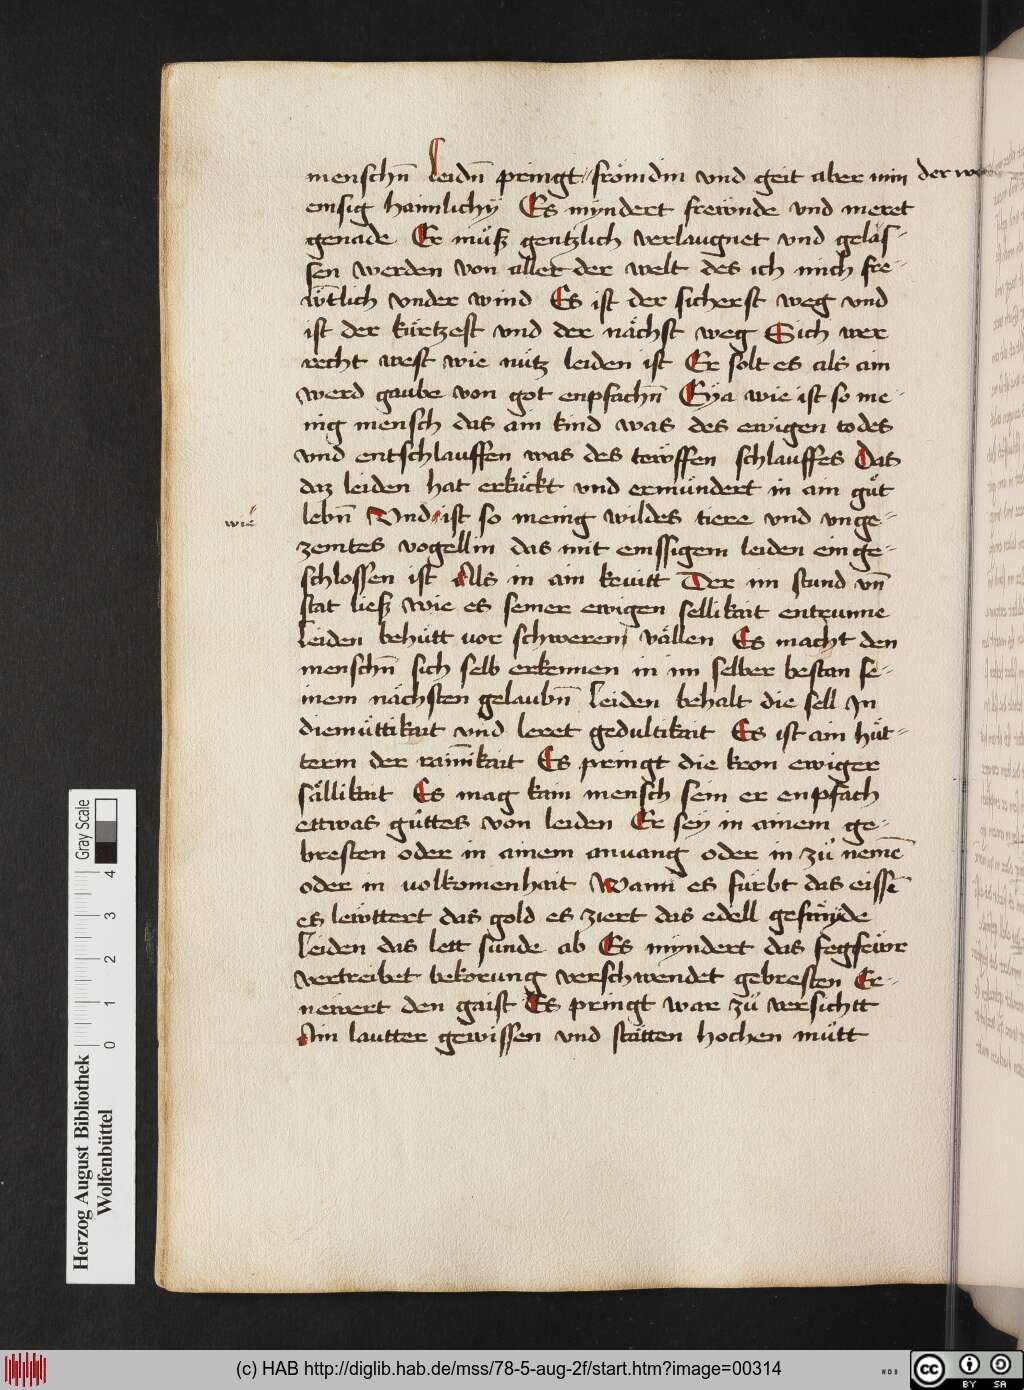 menschn̄ Leidn̄ pringt frömdin vnd geit aber min der we
emsig hainlichÿ Es mÿndert frewnde vnd meret
genade Er müß gentzlich verlaugnet vnd geläs-
sen werden von aller der welt des ich mich fre-
wͤtlich vnder wind Es ist der sicherst weg vnd
ist der kürtzest vnd der nächst weg Sich wer
recht west wie nütz leiden ist Er solt es als ain
werd gaube von got enpfachn̄ Eÿa wie ist so me-
nig mensch das am kind was des ewigen todes
vnd entschlauffen was des tewffen schlauffes Das
daz leiden hat erkückt vnd ermündert in ain gůt
lebn̄ Vnd ist so menig wildes tiere vnd vnge-
wie
zemtes vogellin das mit emssigem leiden ein ge-
schlossen ist Als in ain kevitt Der im stund vn̄
stat ließ wie es seiner ewigen sellikait entrunne
Leiden behütt vor schweren vällen Es macht den
menschn̄ sich selb erkennen in im selber bestan se-
inem nächsten gelaubn̄ Leiden behalt die sell In
diemüttikait vnd leret gedultikait Es ist ain hüt-
terin der rainikait Es pringt die kron ewiger
sällikait Es mag kain mensch sein er enpfach
ettwas gůttes von leiden Er seÿ in ainem ge-
bresten oder in ainem anvang oder in zů nemē
oder in volkomenhait Wann es fürbt das eissē
es lewttert das gold es ziert das edell gesmÿde
Leiden das lett sünde ab Es mÿndert das fegfewr
vertreibet bekorung verschwendet gebresten Er-
newert den gaist Es pringt war zů versichtt
Ain lautter gewissen vnd stätten hochen můtt
Gray Scale
0 1 2 3 4
Herzog August Bibliothek
Wolfenbüttel
(c) HAB http://diglib.hab.de/mss/78-5-aug-2f/start.htm?image=00314
WDB
cc
BY SA